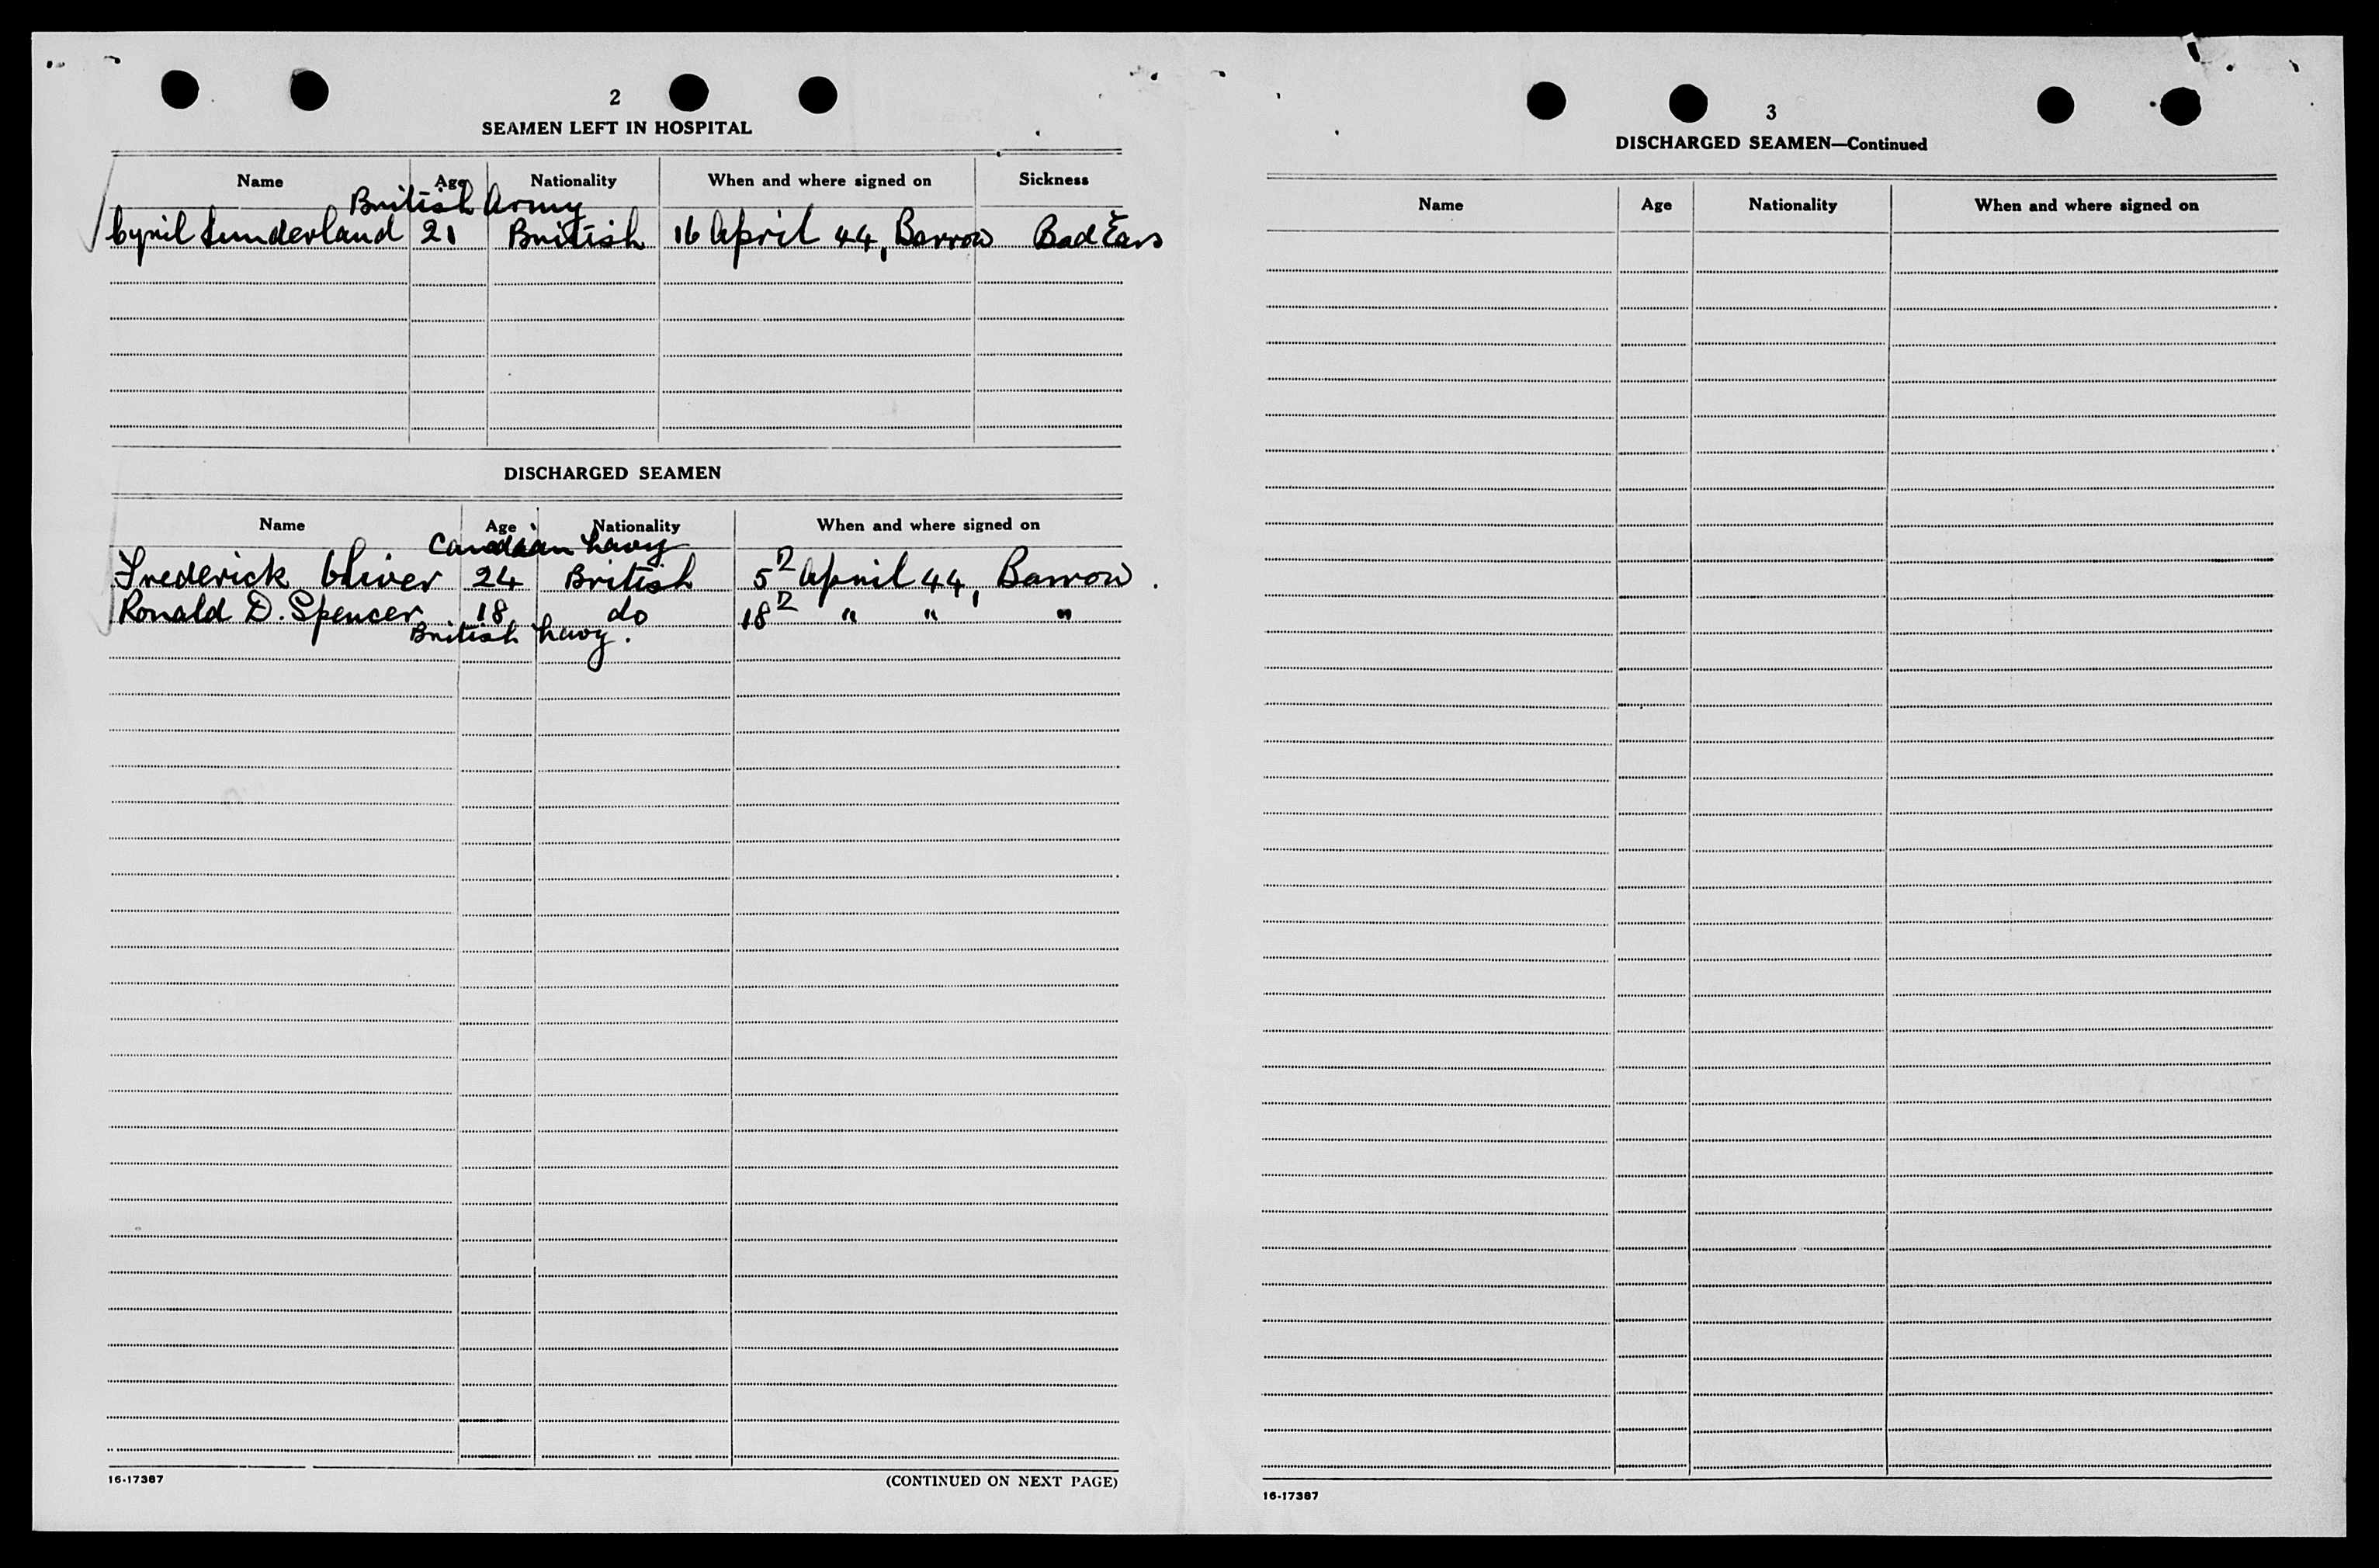 2
SEAMEN LEFT IN HOSPITAL
Name Age Nationality When and where signed on Sickness
British Army
Cyril Sunderland 21 British 16 April 44, Barrow Bad Ears
DISCHARGED SEAMEN
Name Age Nationality When and where signed on
Canadian Navy
Frederick Oliver 24 British 5th April 44, Barrow.
Ronald D. Spencer 18 do 18th " " "
British Navy.
16-17387 (CONTINUED ON NEXT PAGE)
3
DISCHARGED SEAMEN—Continued
Name Age Nationality When and where signed on
16-17387